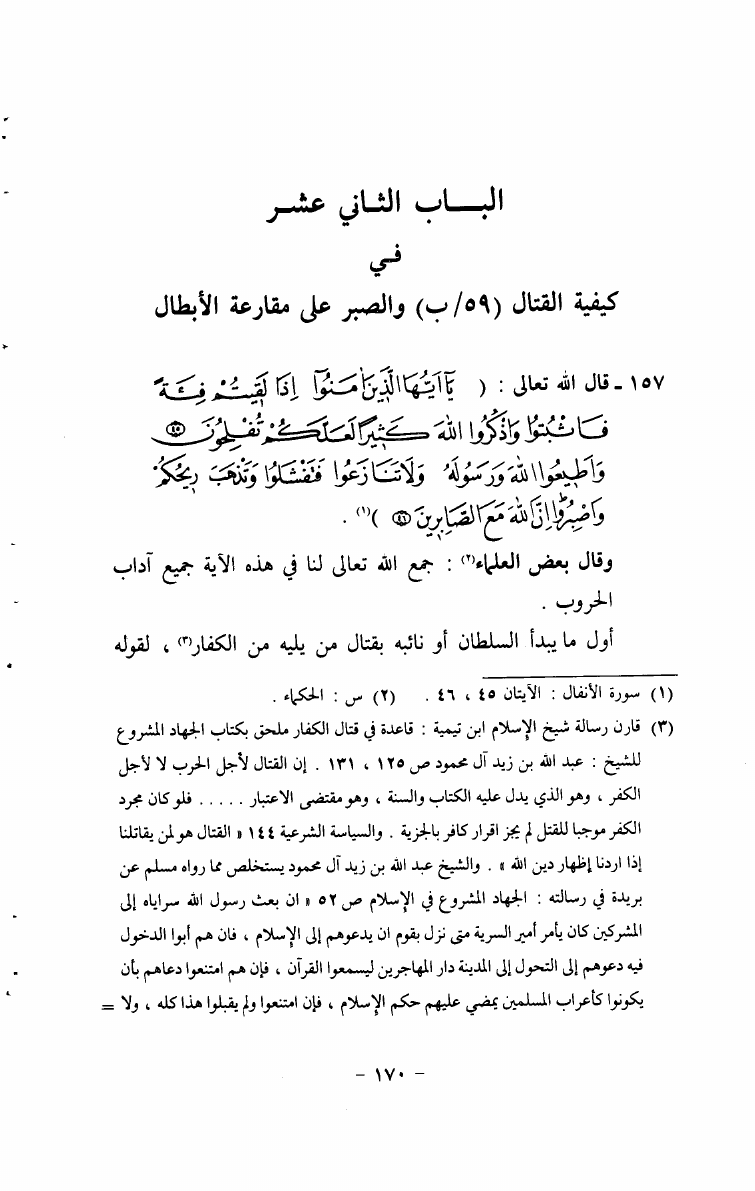 البـــاب الثـاني عشـر
فـي
كيفية القتال (٥٩/ب) والصبر على مقارعة الأبطال
١٥٧ ـ قال الله تعالى : ( يَٰٓأَيُّهَا الَّذِينَ ءَامَنُوٓا۟ إِذَا لَقِيتُمْ فِئَةً
فَاثْبُتُوا وَاذْكُرُوا اللَّهَ كَثِيرًا لَعَلَّكُمْ تُفْلِحُونَ ٤٥
وَأَطِيعُوا اللَّهَ وَرَسُولَهُ وَلَا تَنَازَعُوا فَتَفْشَلُوا وَتَذْهَبَ رِيحُكُمْ
وَاصْبِرُوا إِنَّ اللَّهَ مَعَ الصَّابِرِينَ ٤٦ )(١) .
وقال بعض العلماء(٢) : جمع الله تعالى لنا في هذه الآية جميع آداب
الحروب .
أول ما يبدأ السلطان أو نائبه بقتال من يليه من الكفار(٣) ، لقوله
(١) سورة الأنفال : الآيتان ٤٥ ، ٤٦ . (٢) س : الحكماء .
(٣) قارن رسالة شيخ الإسلام ابن تيمية : قاعدة في قتال الكفار ملحق بكتاب الجهاد المشروع
للشيخ : عبد الله بن زيد آل محمود ص ١٢٥ ، ١٣١ . إن القتال لأجل الحرب لا لأجل
الكفر ، وهو الذي يدل عليه الكتاب والسنة ، وهو مقتضى الاعتبار ..... فلو كان مجرد
الكفر موجبا للقتل لم يجز اقرار كافر بالجزية . والسياسة الشرعية ١٤٤ « القتال هو لمن يقاتلنا
إذا اردنا إظهار دين الله » . والشيخ عبد الله بن زيد آل محمود يستخلص مما رواه مسلم عن
بريدة في رسالته : الجهاد المشروع في الإسلام ص ٥٢ « ان بعث رسول الله سراياه إلى
المشركين كان يأمر أمير السرية متى نزل بقوم ان يدعوهم إلى الإسلام ، فان هم أبوا الدخول
فيه دعوهم إلى التحول إلى المدينة دار المهاجرين ليسمعوا القرآن ، فإن هم امتنعوا دعاهم بأن
يكونوا كأعراب المسلمين يمضي عليهم حكم الإسلام ، فإن امتنعوا ولم يقبلوا هذا كله ، ولا =
– ١٧٠ –